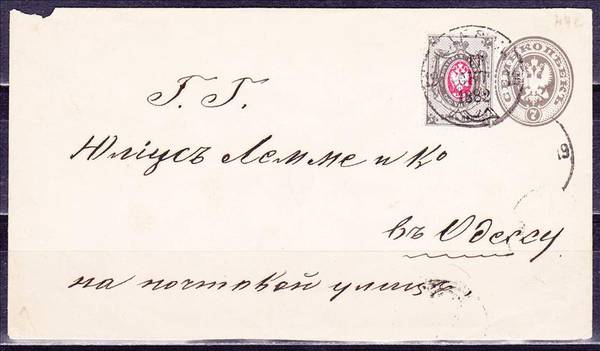 Г. Г.
Юліусъ Лемме и Ко
въ Одессу
на почтовой улицѣ
СЕМЬ КОПѢЕКЪ
7
1882
19